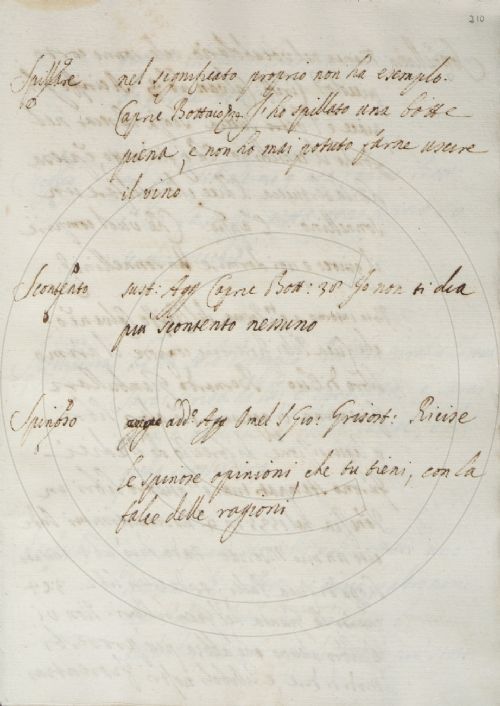 210
Spillare nel significato proprio non ha esemplo.
Capric Bottaio Io ho spillato una botte
piena, e non ho mai potuto farne uscire
il vino
Scontento sust: Agg Capric Bott: 38 Io non ti dia
più scontento nessuno
Spinoso add: Agg Omel S Gio: Grisost: Ricise
le spinose opinioni, che tu tieni, con la
falce delle ragioni